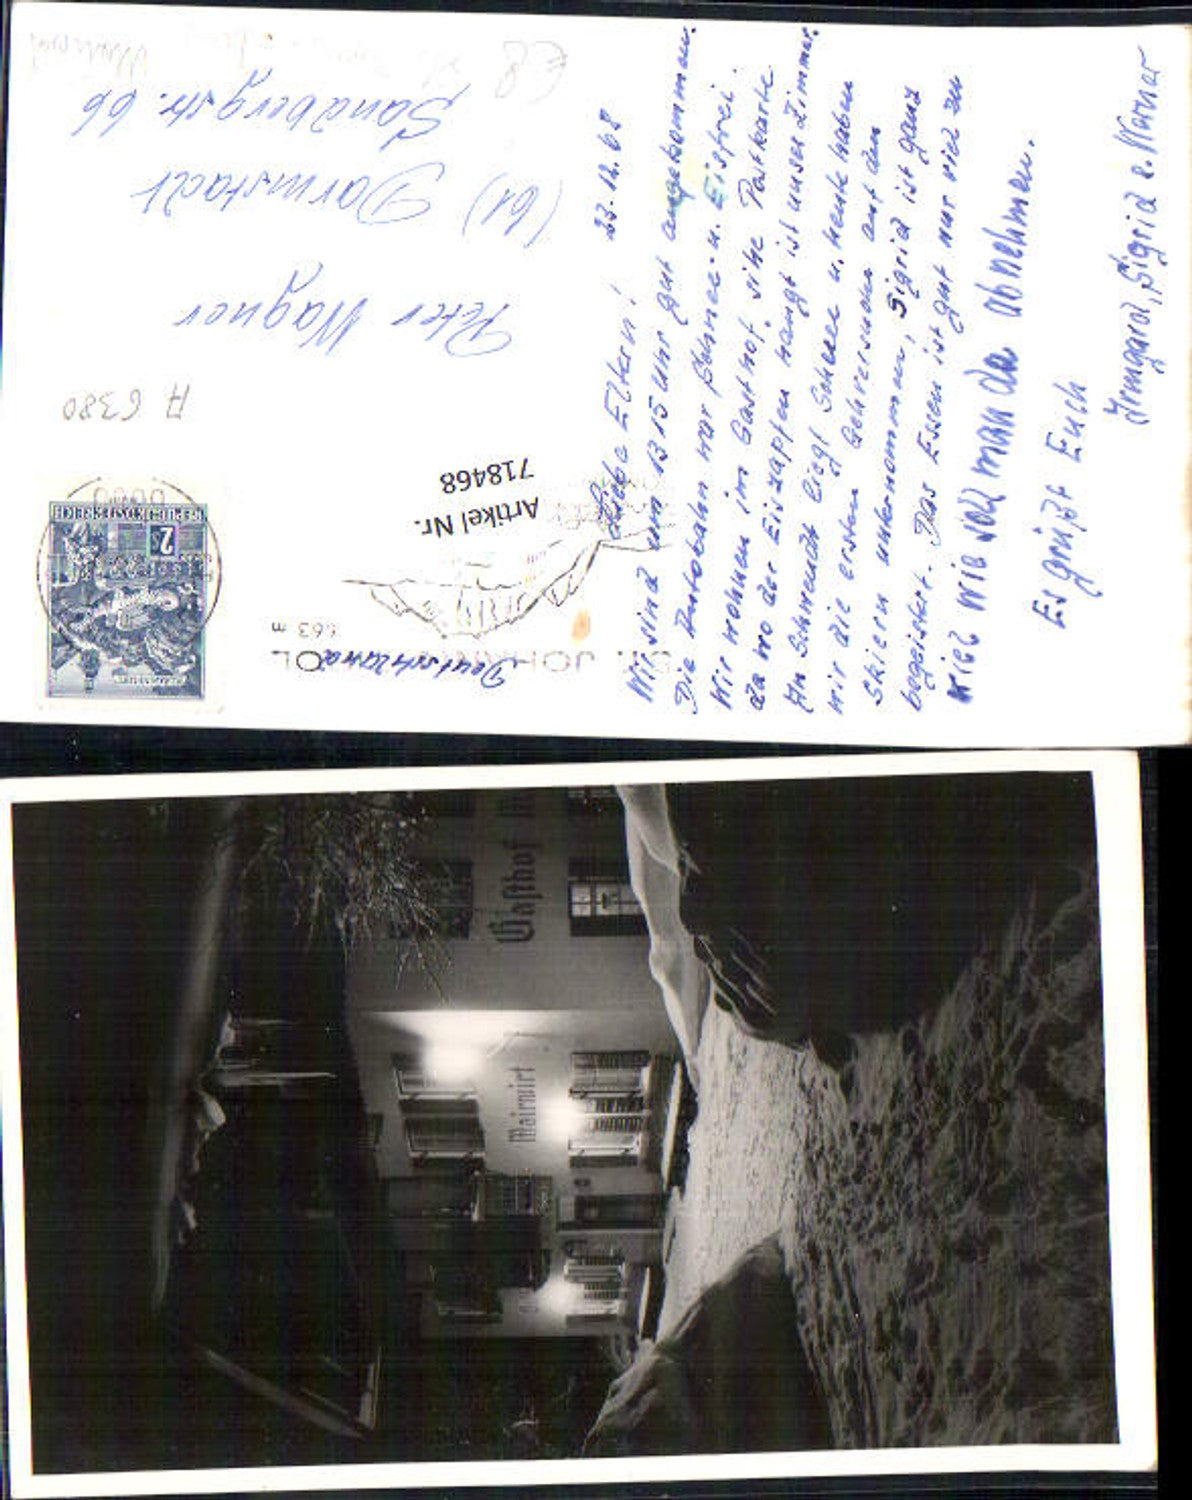 23.12.68
Liebe Eltern!
Wir sind um 13 15 Uhr gut angekommen.
Die Autobahn war Schnee- u. Eisfrei.
Wir wohnen im Gasthof, sihe Postkarte
da wo der Eiszapfen hangt ist unser Zimmer.
In Schwendt liegt Schnee u. heute haben
wir die ersten Gehversuche auf den
Skiern unternommen, Sigrid ist ganz
begeistert. Das Essen ist gut nur viel zu
viel wie soll man da abnehmen.
Es grüßt Euch
Irmgard, Sigrid u. Werner
Peter Wagner
(61) Darmstadt
Sandbergstr. 66
Deutschland
A 6380
€8
Artikel Nr.
718468
ST. JOHANN
OL
663 m
2
REPUBLIK ÖSTERREICH
Gasthof M
Mairwirt